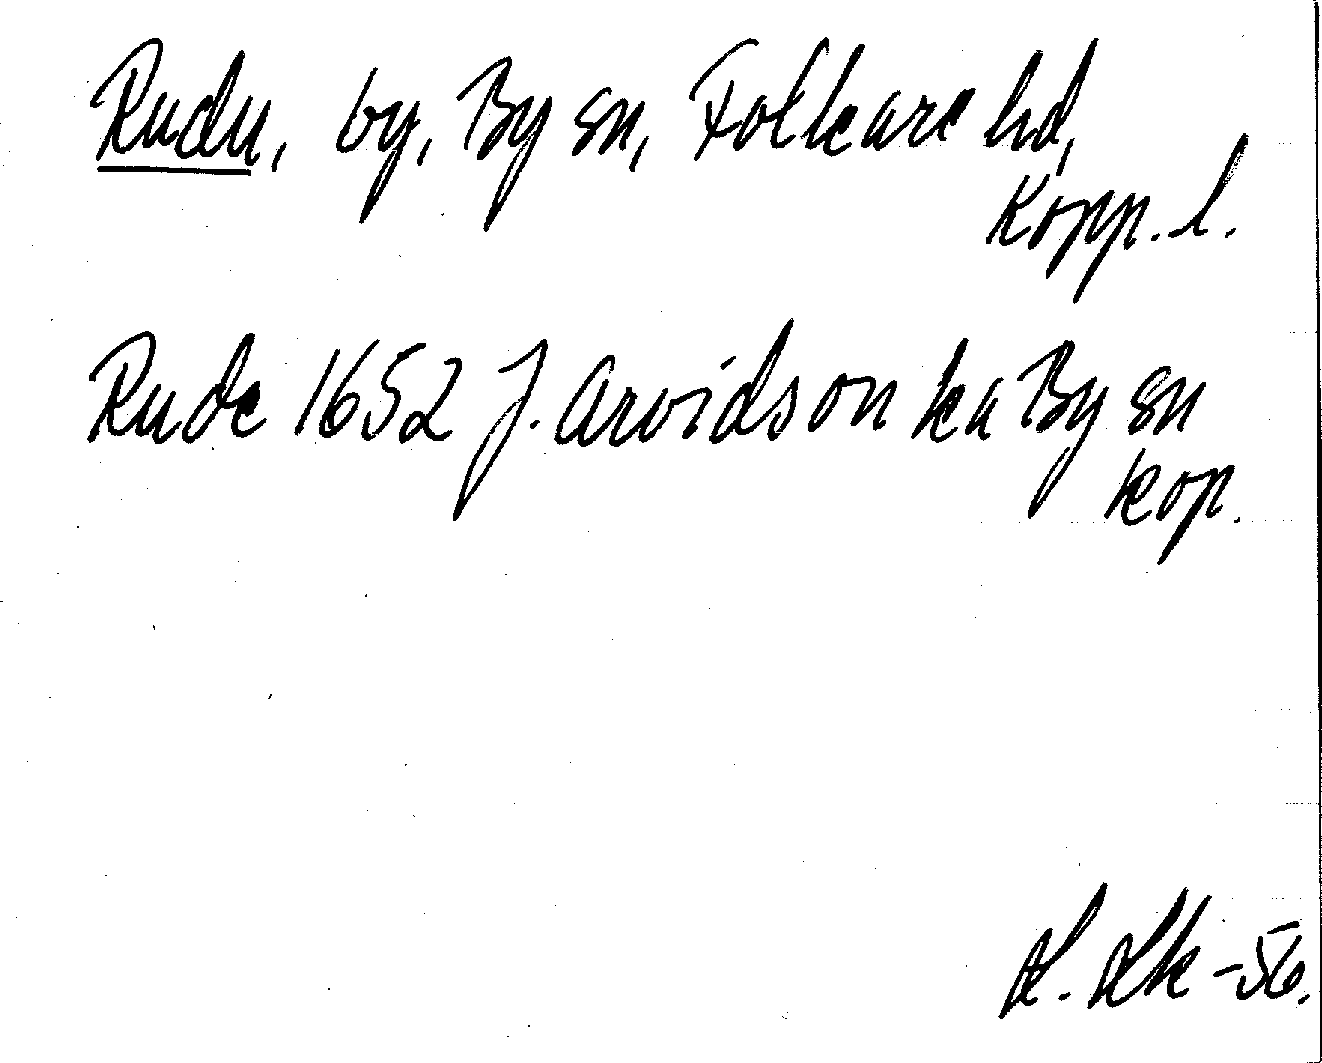 Rudu, by, By sn, Folkare hd,
Kopp. l.
Rude 1652 J. Arvidson ka By sn
kop.
-56.